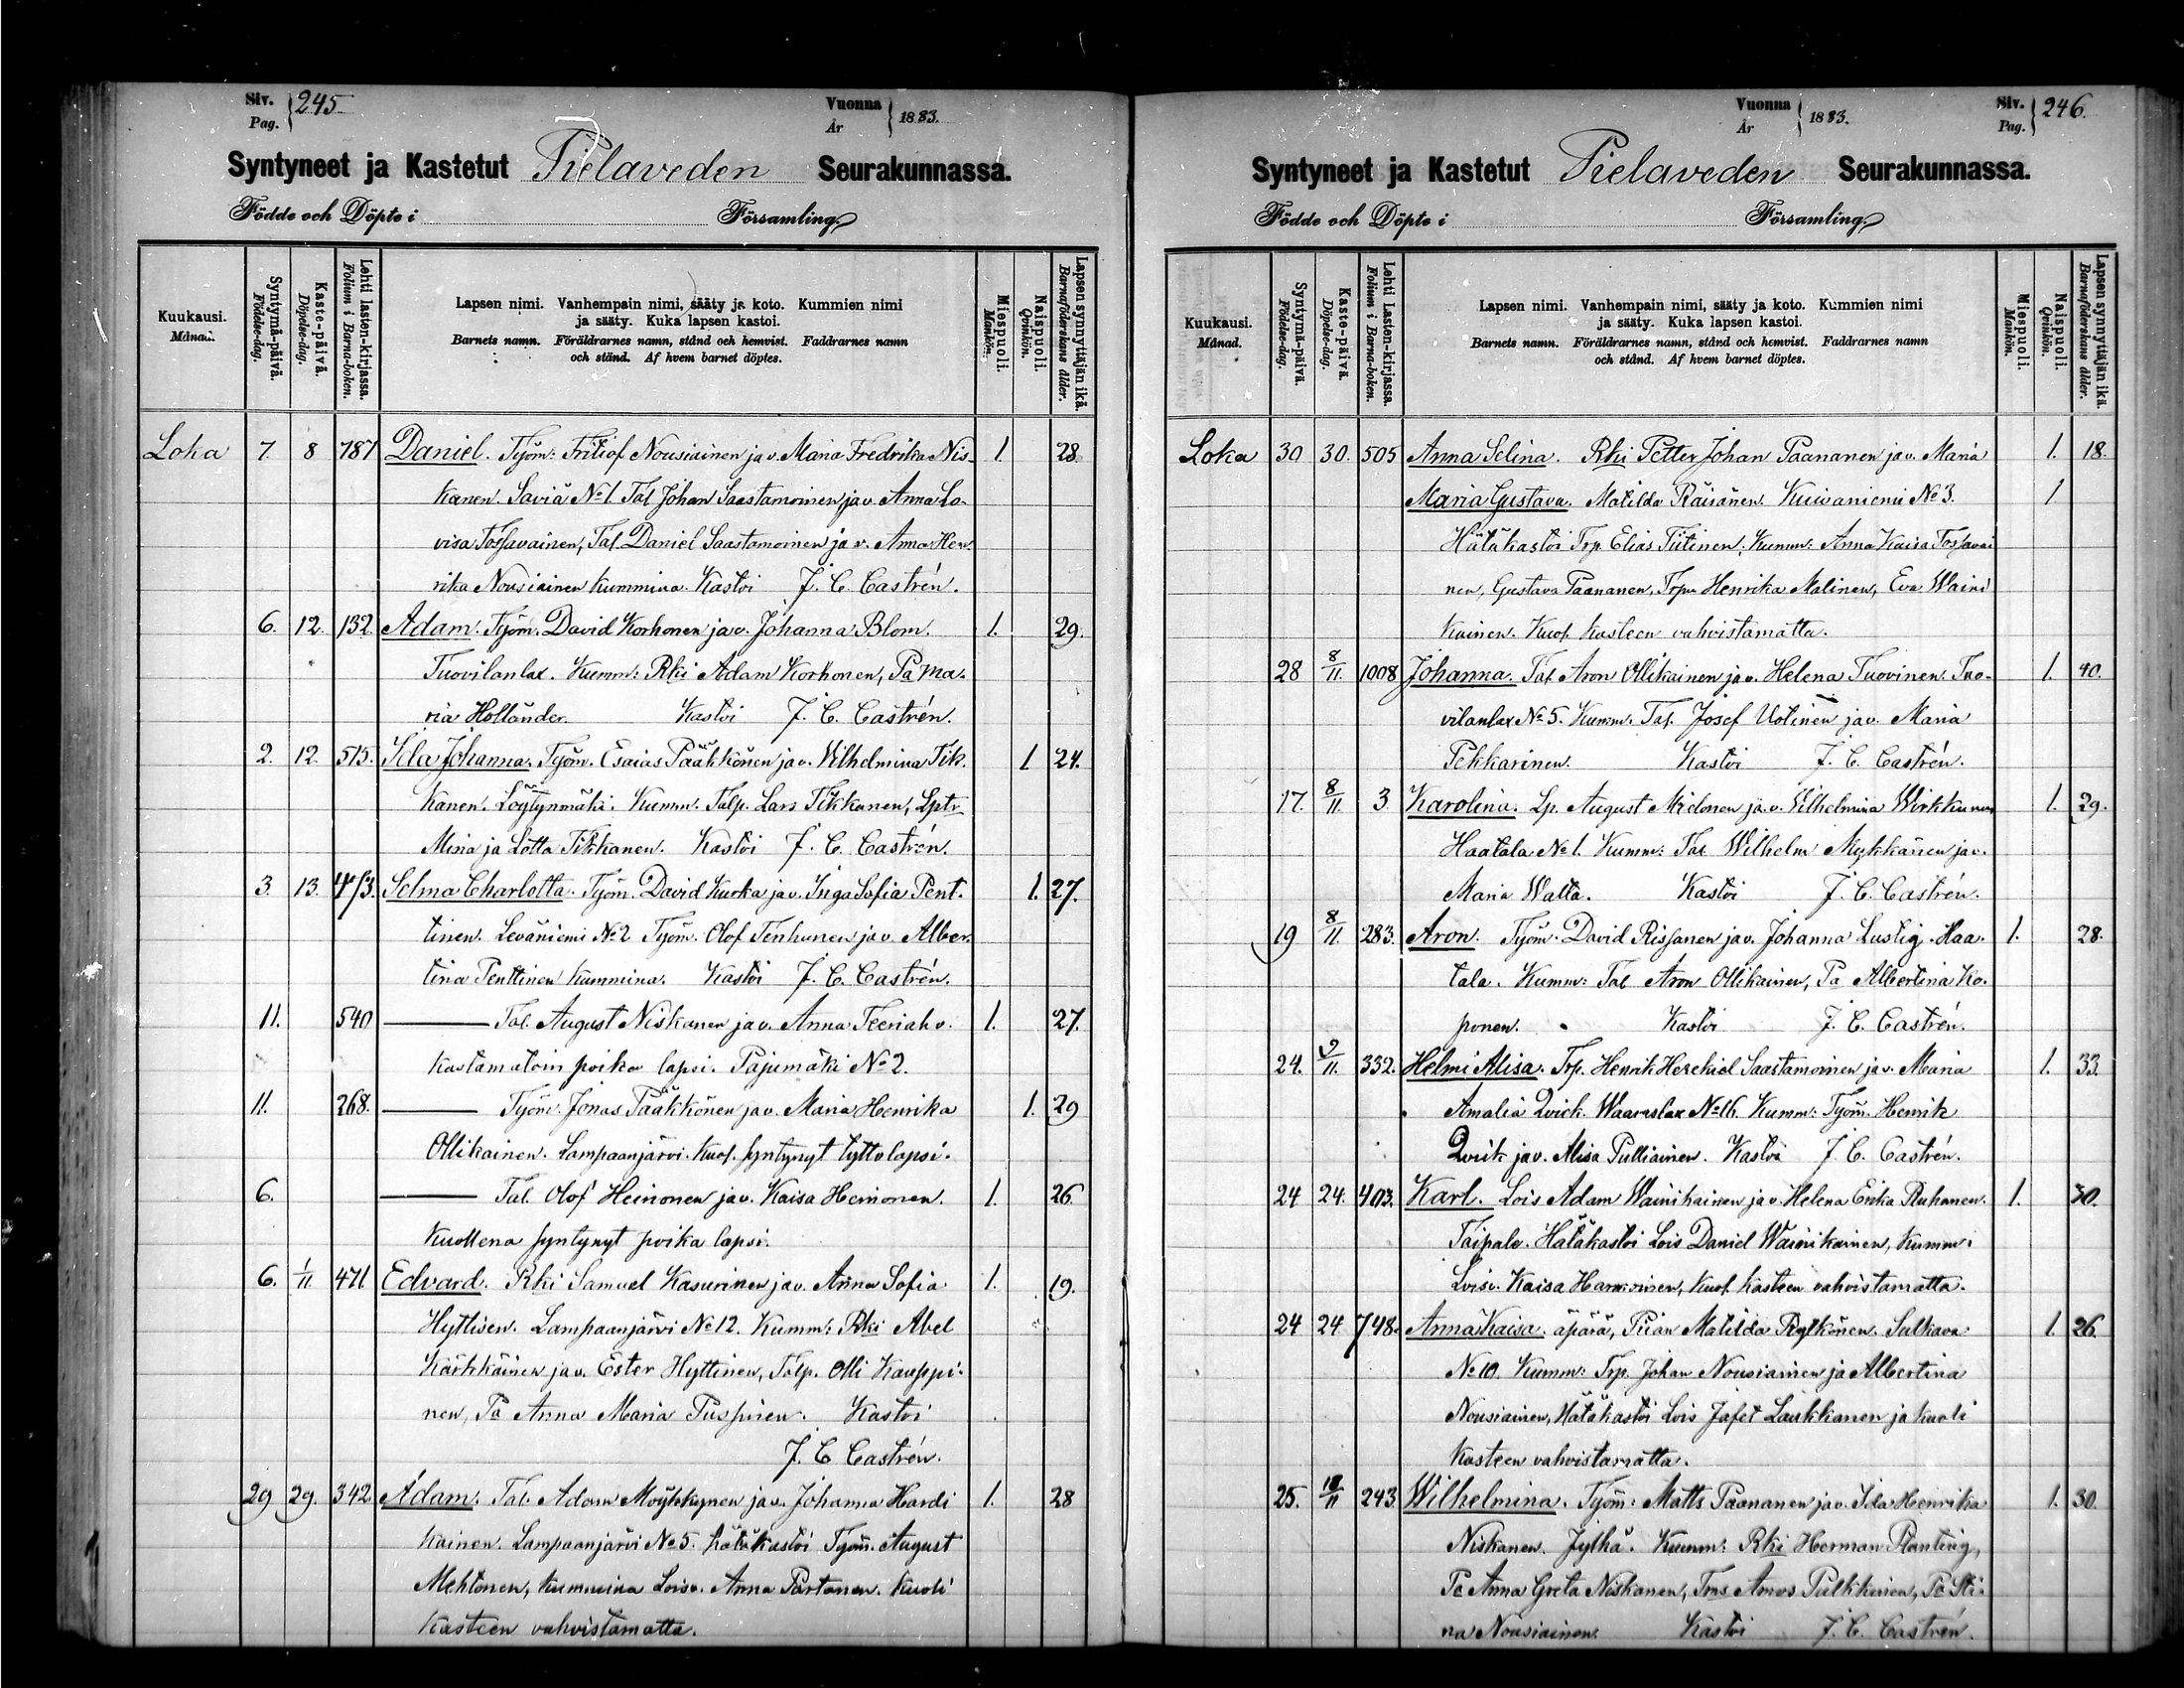 Siv. Pag. 245
Vuonna År 1883.
Syntyneet ja Kastetut Pielaveden Seurakunnassa.
Födde och Döpte i Församling
Kuukausi. Månad.
Syntymä-päivä. Födelse-dag.
Kaste-päivä. Döpelse-dag.
Lehti lasten-kirjassa. Folium i Barna-boken.
Lapsen nimi. Vanhempain nimi, sääty ja koto. Kummien nimi
ja sääty. Kuka lapsen kastoi.
Barnets namn. Föräldrarnes namn, stånd och hemvist. Faddrarnes namn
och stånd. Af hvem barnet döptes.
Miespuoli. Mankön.
Naispuoli. Qvinkön.
Lapsen synnyttäjän ikä. Barnaföderskans ålder.
Loka 7. 8 787 Daniel. Työm: Fritiof Nousiainen ja v. Maria Fredrika Nis- 1. 28.
kanen. Saviä No 1. Tal Johan Saastamoinen ja v. Anna Lo-
visa Tossavainen, Tal. Daniel Saastamoinen ja v. Anna Hen-
rika Nousiainen kummina. Kastoi J. C. Castrén.
6. 12. 132 Adam. Työm. David Korhonen ja v. Johanna Blom. 1. 29.
Tuovilanlax. Kumm: Rki Adam Korhonen, Pa Ma-
ria Holländer. Kastoi J. C. Castrén.
2. 12. 515. Ida Johanna. Työm. Esaias Pääkkönen ja v. Vilhelmina Tik- 1 24.
kanen. Löytynmäki. Kumm: Talp. Lars Tikkanen, Lptr
Mina ja Lotta Tikkanen. Kastoi J. C. Castrén.
3. 13. 473. Selma Charlotta. Työm. David Kuoka ja v. Inga Sofia Pent- 1. 27.
tinen. Leväniemi No 2 Työm. Olof Tenhunen ja v. Alber-
tina Penttinen kummina. Kastoi J. C. Castrén.
11. 540 Tal. August Niskanen ja v. Anna Teeriaho. 1. 27.
kastamatoin poika lapsi. Pajumäki No 2.
11. 268. Työm. Jonas Pääkkönen ja v. Maria Henrika 1. 29
Ollikainen. Lampaanjärvi. Kuol. syntynyt tyttölapsi.
6. Tal. Olof Heinonen ja v. Kaisa Heinonen. 1. 26
Kuollena syntynyt poika lapsi.
6. 1/11 471 Edvard. Rki Samuel Kasurinen ja v. Anna Sofia 1. 19.
Hyttisen. Lampaanjärvi No 12. Kumm: Rki Abel
Kärkkäinen ja v. Ester Hyttinen, Talp. Olli Kauppi-
nen, Pa Anna Maria Puspinen. Kastoi
J. C Castrén.
29 29. 342 Adam. Tal. Adam Möykkynen ja v. Johanna Hardi 1. 28
kainen. Lampaanjärvi No 5. hätäkastoi Työm. August
Mehtonen, kummina Loisv. Anna Partanen. Kuoli
kasteen vahvistamatta.
Vuonna År 1883.
Siv. Pag. 246
Syntyneet ja Kastetut Pielaveden Seurakunnassa.
Födde och Döpte i Församling
Kuukausi. Månad.
Syntymä-päivä. Födelse-dag.
Kaste-päivä. Döpelse-dag.
Lehti Lasten-kirjassa. Folium i Barna-boken.
Lapsen nimi. Vanhempain nimi, sääty ja koto. Kummien nimi
ja sääty. Kuka lapsen kastoi.
Barnets namn. Föräldrarnes namn, stånd och hemvist. Faddrarnes namn
och stånd. Af hvem barnet döptes.
Miespuoli. Mankön.
Naispuoli. Qvinkön.
Lapsen synnyttäjän ikä. Barnaföderskans ålder.
Loka 30 30. 505 Anna Selina. Rki Petter Johan Paananen ja v. Maria 1. 18.
Maria Gustava. Matilda Räisänen. Kuivaniemi No 3. 1
Hätäkastoi Trp. Elias Tiitinen; Kumm: Anna Kaisa Tossavai
nen, Gustava Paananen, Trpv Henrika Malinen, Eva Waini
kainen. Kuol. kasteen vahvistamatta.
28 8/11. 1008 Johanna. Tal. Aron Ollikainen ja v. Helena Tuovinen. Tuo- 1. 40.
vilanlax No 5. Kumm: Tal. Josef Uotinen ja v. Maria
Pekkarinen. Kastoi J. C. Castrén.
17. 8/11. 3. Karolina. Lp. August Mielonen ja v. Vilhelmina Wirkkunen 1. 29.
Haatala No 1. Kumm: Tal Wilhelm Mykkänen ja v.
Maria Watta. Kastoi J. C. Castrén.
19 8/11. 283. Aron. Työm. David Rissanen ja v. Johanna Lustig. Haa- 1. 28.
tala. Kumm: Tal Aron Ollikainen, Pa Albertina Ko-
ponen. Kastoi J. C. Castrén.
24. 9/11. 332. Helmi Alisa. Trp. Henrik Herekiel Saastamoinen ja v. Maria 1. 33.
Amalia Qvick. Waaraslax No 16. Kumm: Työm. Henrik
Qvick ja v. Alisa Pulliainen. Kastoi J. C. Castrén.
24 24. 403. Karl. Lois Adam Wainikainen ja v. Helena Erika Ruhanen. 1. 30.
Taipale. Hätäkastoi Lois Daniel Wainikainen, Kumm:
Loisv. Kaisa Harmoinen, Kuol. kasteen vahvistamatta.
24 24 748. Anna Kaisa. äpärä, Piian Matilda Rytkönen. Sulkava 1. 26.
No 10. Kumm: Trp. Johan Nousiainen ja Albertina
Nousiainen, Hätäkastoi Lois Jafet Laukkanen ja kuoli
kasteen vahvistamatta.
25. 18/11 243. Wilhelmina. Työm: Matts Paananen ja v. Ida Henrika 1. 30.
Niskanen. Jylhä. Kumm: Rki Herman Planting,
Pa Anna Greta Niskanen, Tms Amos Pulkkinen, Pa Sti-
na Nousiainen. Kastoi J. C. Castrén.